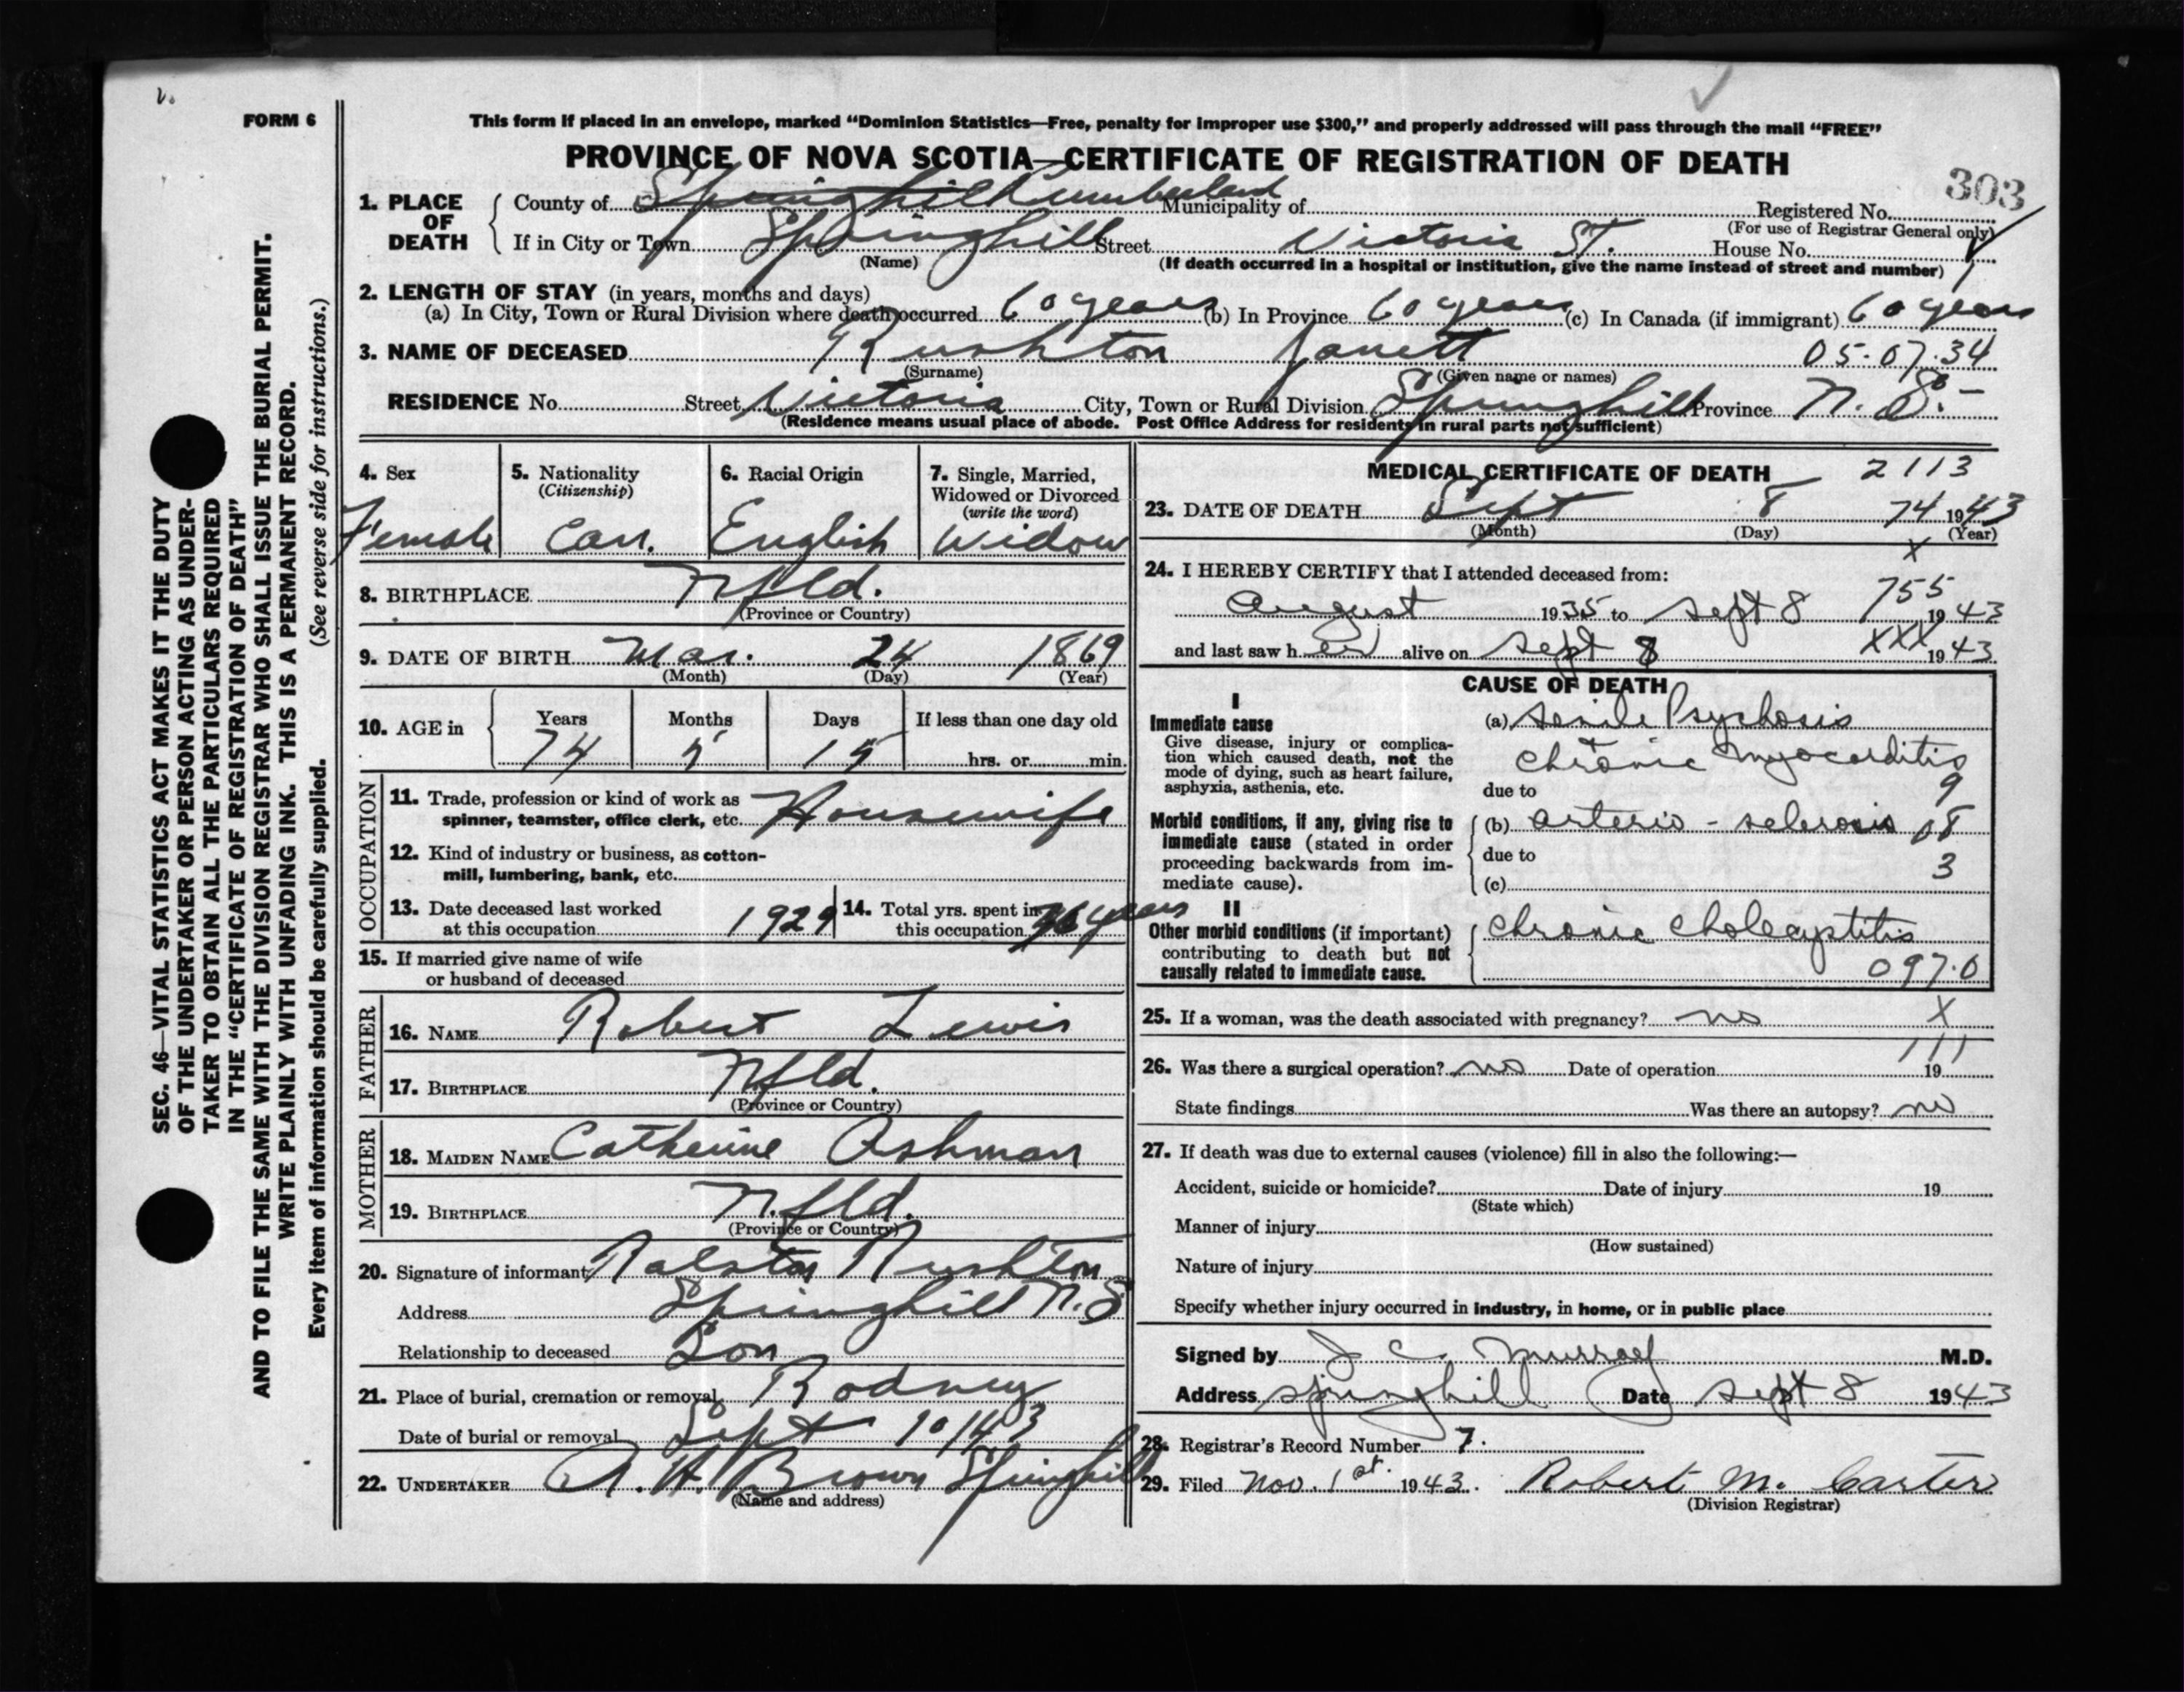 FORM 6
This form if placed in an envelope, marked “Dominion Statistics—Free, penalty for improper use $300,” and properly addressed will pass through the mail “FREE”
PROVINCE OF NOVA SCOTIA—CERTIFICATE OF REGISTRATION OF DEATH
303
1. PLACE OF DEATH
County of Springhill Cumberland Municipality of Registered No.
(For use of Registrar General only)
If in City or Town Springhill Street Victoria St. House No.
(Name) (If death occurred in a hospital or institution, give the name instead of street and number)
2. LENGTH OF STAY (in years, months and days)
(a) In City, Town or Rural Division where death occurred 60 years (b) In Province 60 years (c) In Canada (if immigrant) 60 years
3. NAME OF DECEASED Rushton Janett 05-07-34
(Surname) (Given name or names)
RESIDENCE No. Street Victoria City, Town or Rural Division Springhill Province N. S.
(Residence means usual place of abode. Post Office Address for residents in rural parts not sufficient)
4. Sex
Female
5. Nationality
(Citizenship)
Can.
6. Racial Origin
English
7. Single, Married,
Widowed or Divorced
(write the word)
Widow
8. BIRTHPLACE Nfld.
(Province or Country)
9. DATE OF BIRTH Mar. 24 1869
(Month) (Day) (Year)
10. AGE in Years Months Days If less than one day old
74 5 15 hrs. or min.
OCCUPATION
11. Trade, profession or kind of work as
spinner, teamster, office clerk, etc. Housewife
12. Kind of industry or business, as cotton-
mill, lumbering, bank, etc.
13. Date deceased last worked
at this occupation 1929
14. Total yrs. spent in
this occupation years
15. If married give name of wife
or husband of deceased
FATHER
16. NAME Robert Lewis
17. BIRTHPLACE Nfld.
(Province or Country)
MOTHER
18. MAIDEN NAME Catherine Ashman
19. BIRTHPLACE Nfld.
(Province or Country)
20. Signature of informant Ralston Rushton
Address Springhill N.S
Relationship to deceased Son
21. Place of burial, cremation or removal Rodney
Date of burial or removal Sept 10 1943
22. UNDERTAKER A. H. Brown Springhill
(Name and address)
MEDICAL CERTIFICATE OF DEATH 2113
23. DATE OF DEATH Sept 8 74 1943
(Month) (Day) (Year)
X
24. I HEREBY CERTIFY that I attended deceased from:
755
August 1935 to Sept 8 1943
and last saw her alive on Sept 8 XXX 1943
CAUSE OF DEATH
I
Immediate cause
Give disease, injury or complica-
tion which caused death, not the
mode of dying, such as heart failure,
asphyxia, asthenia, etc.
(a) Senile Psychosis
chronic myocarditis
9
due to
Morbid conditions, if any, giving rise to
immediate cause (stated in order
proceeding backwards from im-
mediate cause).
(b) arterio-sclerosis
due to
3
(c)
II
Other morbid conditions (if important)
contributing to death but not
causally related to immediate cause.
chronic cholecystitis
097.0
25. If a woman, was the death associated with pregnancy? no X
111
26. Was there a surgical operation? no Date of operation 19
State findings Was there an autopsy? no
27. If death was due to external causes (violence) fill in also the following:—
Accident, suicide or homicide? Date of injury 19
(State which)
Manner of injury
(How sustained)
Nature of injury
Specify whether injury occurred in industry, in home, or in public place
Signed by J C Murray M.D.
Address Springhill Date Sept 8 1943
28. Registrar's Record Number 7.
29. Filed Nov. 1st. 1943. Robert M. Carter
(Division Registrar)
SEC. 46—VITAL STATISTICS ACT MAKES IT THE DUTY
OF THE UNDERTAKER OR PERSON ACTING AS UNDER-
TAKER TO OBTAIN ALL THE PARTICULARS REQUIRED
IN THE “CERTIFICATE OF REGISTRATION OF DEATH”
AND TO FILE THE SAME WITH THE DIVISION REGISTRAR WHO SHALL ISSUE THE BURIAL PERMIT.
WRITE PLAINLY WITH UNFADING INK. THIS IS A PERMANENT RECORD.
Every item of information should be carefully supplied. (See reverse side for instructions.)